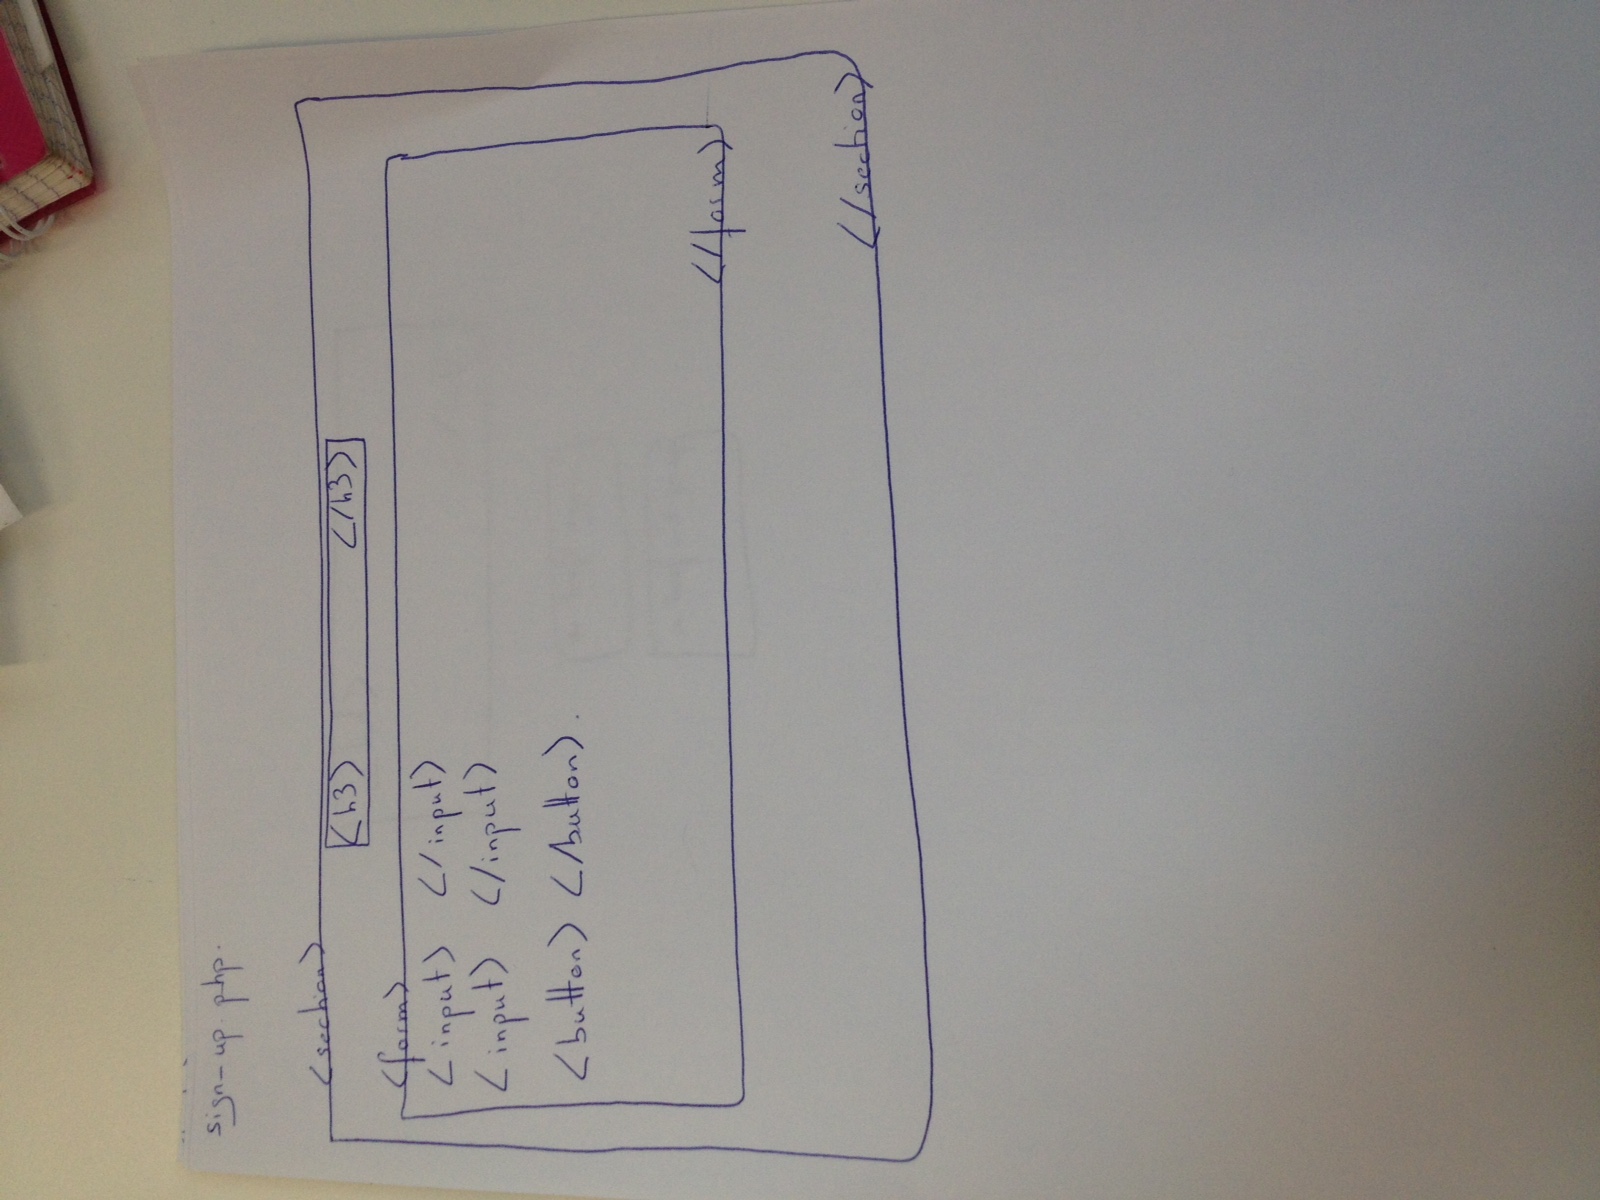 sign-up.php.
<section>
<h3> </h3>
<form>
<input> </input>
<input> </input>
<button> </button>.
</form>
</section>